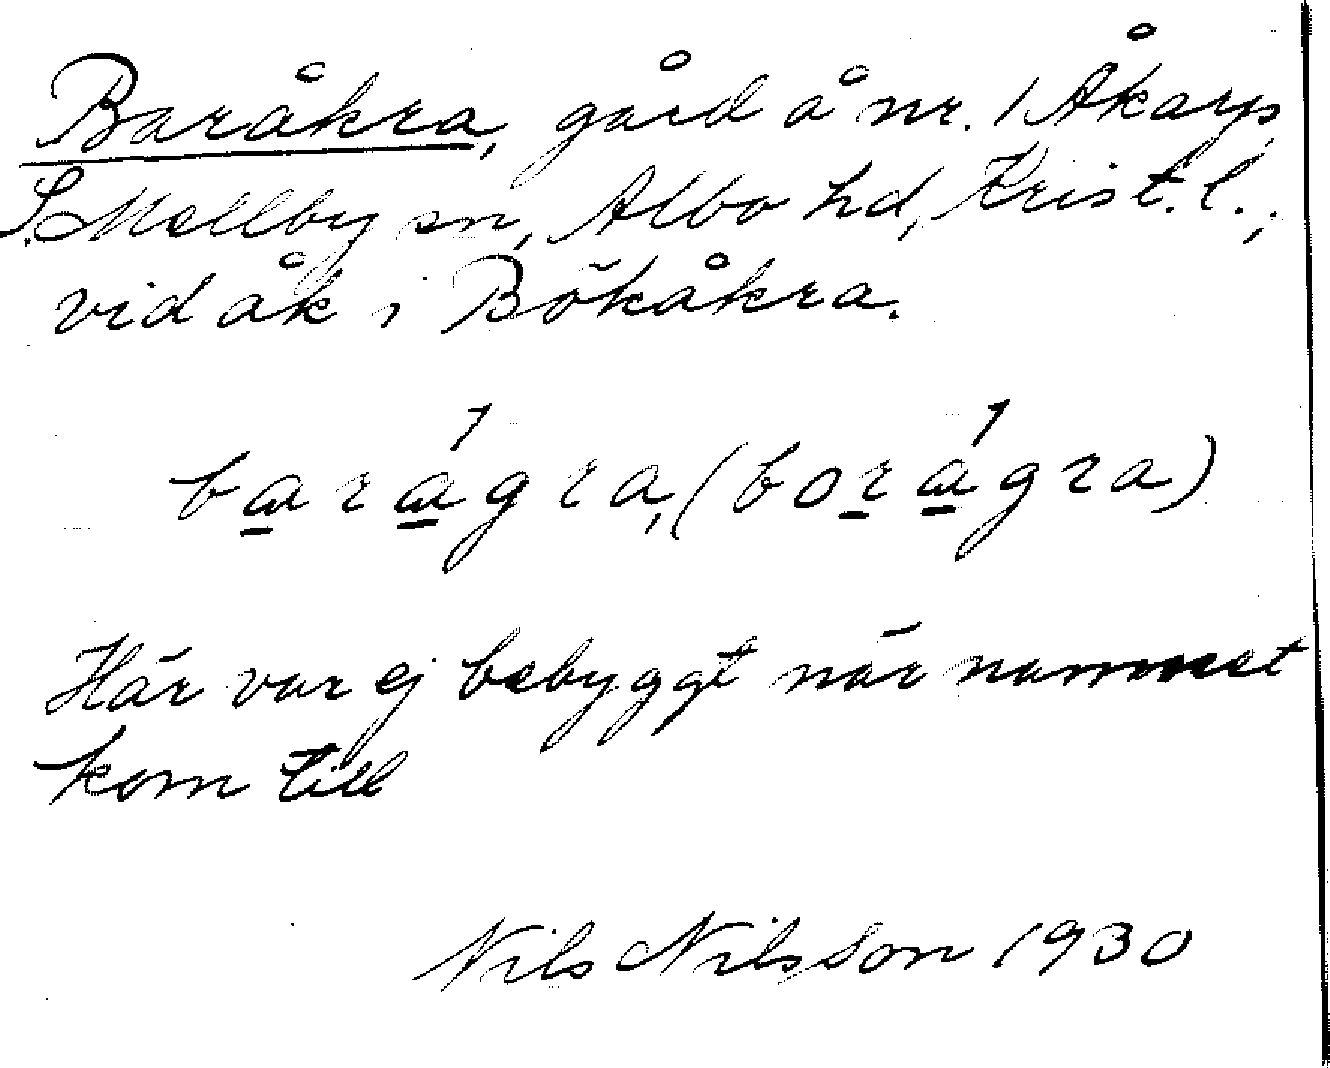 Baråkra, gård å nr. 1 Åkarp,
S. Mellby sn, Albo hd, Krist. l.;
vid åk i Bökåkra.
barágra, (borágra)
Här var ej bebyggt när namnet
kom till
Nils Nilsson 1930